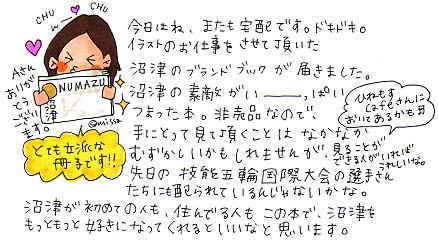 CHU CHU
んー
Aさん
ありが
とう
ござい
ます。
NUMAZU
沼津
@missa
とても立派な
冊子です!!
今日はね、またも宅配です。ドキドキ。
イラストのお仕事をさせて頂いた
沼津のブランドブックが届きました。
沼津の素敵がいーーっぱい
つまった本。非売品なので、
手にとって見て頂くことはなかなか
むずかしいかもしれませんが、見ることが
できる人がいれば
うれしいな。
ひねもす
Cafeさんに
おいてあるかも
先日の技能五輪国際大会の選手さん
たちにも配られているんじゃないかな。
沼津が初めての人も、住んでる人もこの本で、沼津を
もっともっと好きになってくれるといいなと思います。